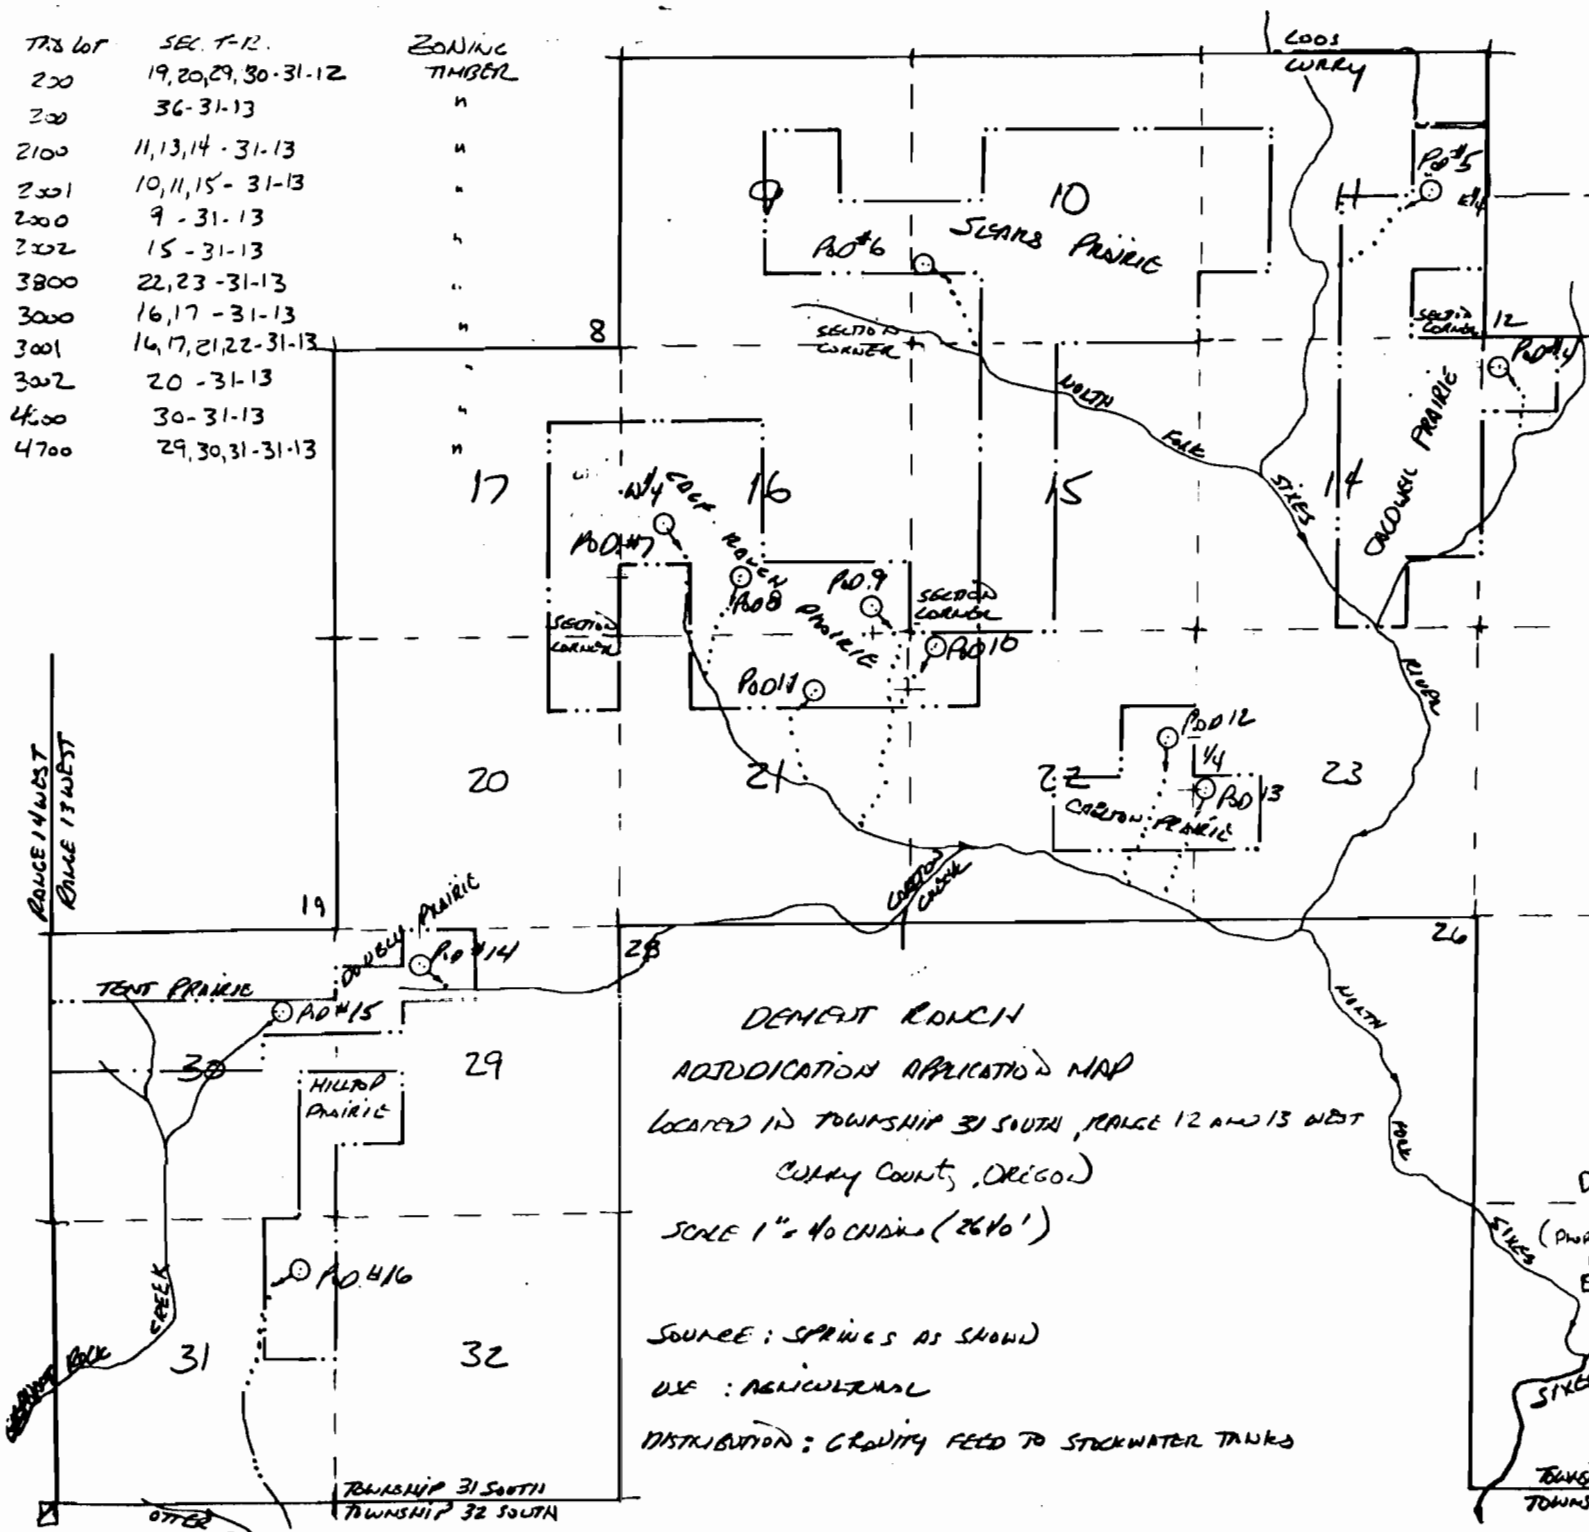 TAX LOT SEC. T-R. ZONING
200 19,20,29,30-31-12 TIMBER
200 36-31-13 "
2100 11,13,14-31-13 "
2001 10,11,15-31-13 "
2000 9-31-13
2002 15-31-13 "
3800 22,23-31-13 "
3000 16,17-31-13 "
3001 16,17,21,22-31-13
3002 20-31-13 "
4600 30-31-13 "
4700 29,30,31-31-13 "
COOS
CURRY
POD #5
E 1/4
9
10
11
SEARS PRAIRIE
POD #6
8
SECTION
CORNER
SECTION
CORNER
12
POD #4
NORTH
FORK
SIXES
RIVER
CALDWELL PRAIRIE
17
16
15
14
W 1/4
EDGE
POD #7
POD 8
PRAIRIE
POD 9
SECTION
CORNER
SECTION
CORNER
POD 10
POD 11
POD 12
1/4
POD 13
20
21
22
23
CARLTON PRAIRIE
CARLTON
CREEK
RANGE 14 WEST
RANGE 13 WEST
19
PRAIRIE
POD #14
28
26
TENT PRAIRIE
POD #15
30
29
HILLTOP
PRAIRIE
DEMENT RANCH
ADJUDICATION APPLICATION MAP
LOCATED IN TOWNSHIP 31 SOUTH, RANGE 12 AND 13 WEST
CURRY COUNTY, OREGON
SCALE 1" = 40 CHAINS (2640')
NORTH
FORK
SIXES
POD #16
CREEK
ROCK
31
32
SOURCE: SPRINGS AS SHOWN
USE: AGRICULTURAL
DISTRIBUTION: GRAVITY FEED TO STOCKWATER TANKS
TOWNSHIP 31 SOUTH
TOWNSHIP 32 SOUTH
OTTER